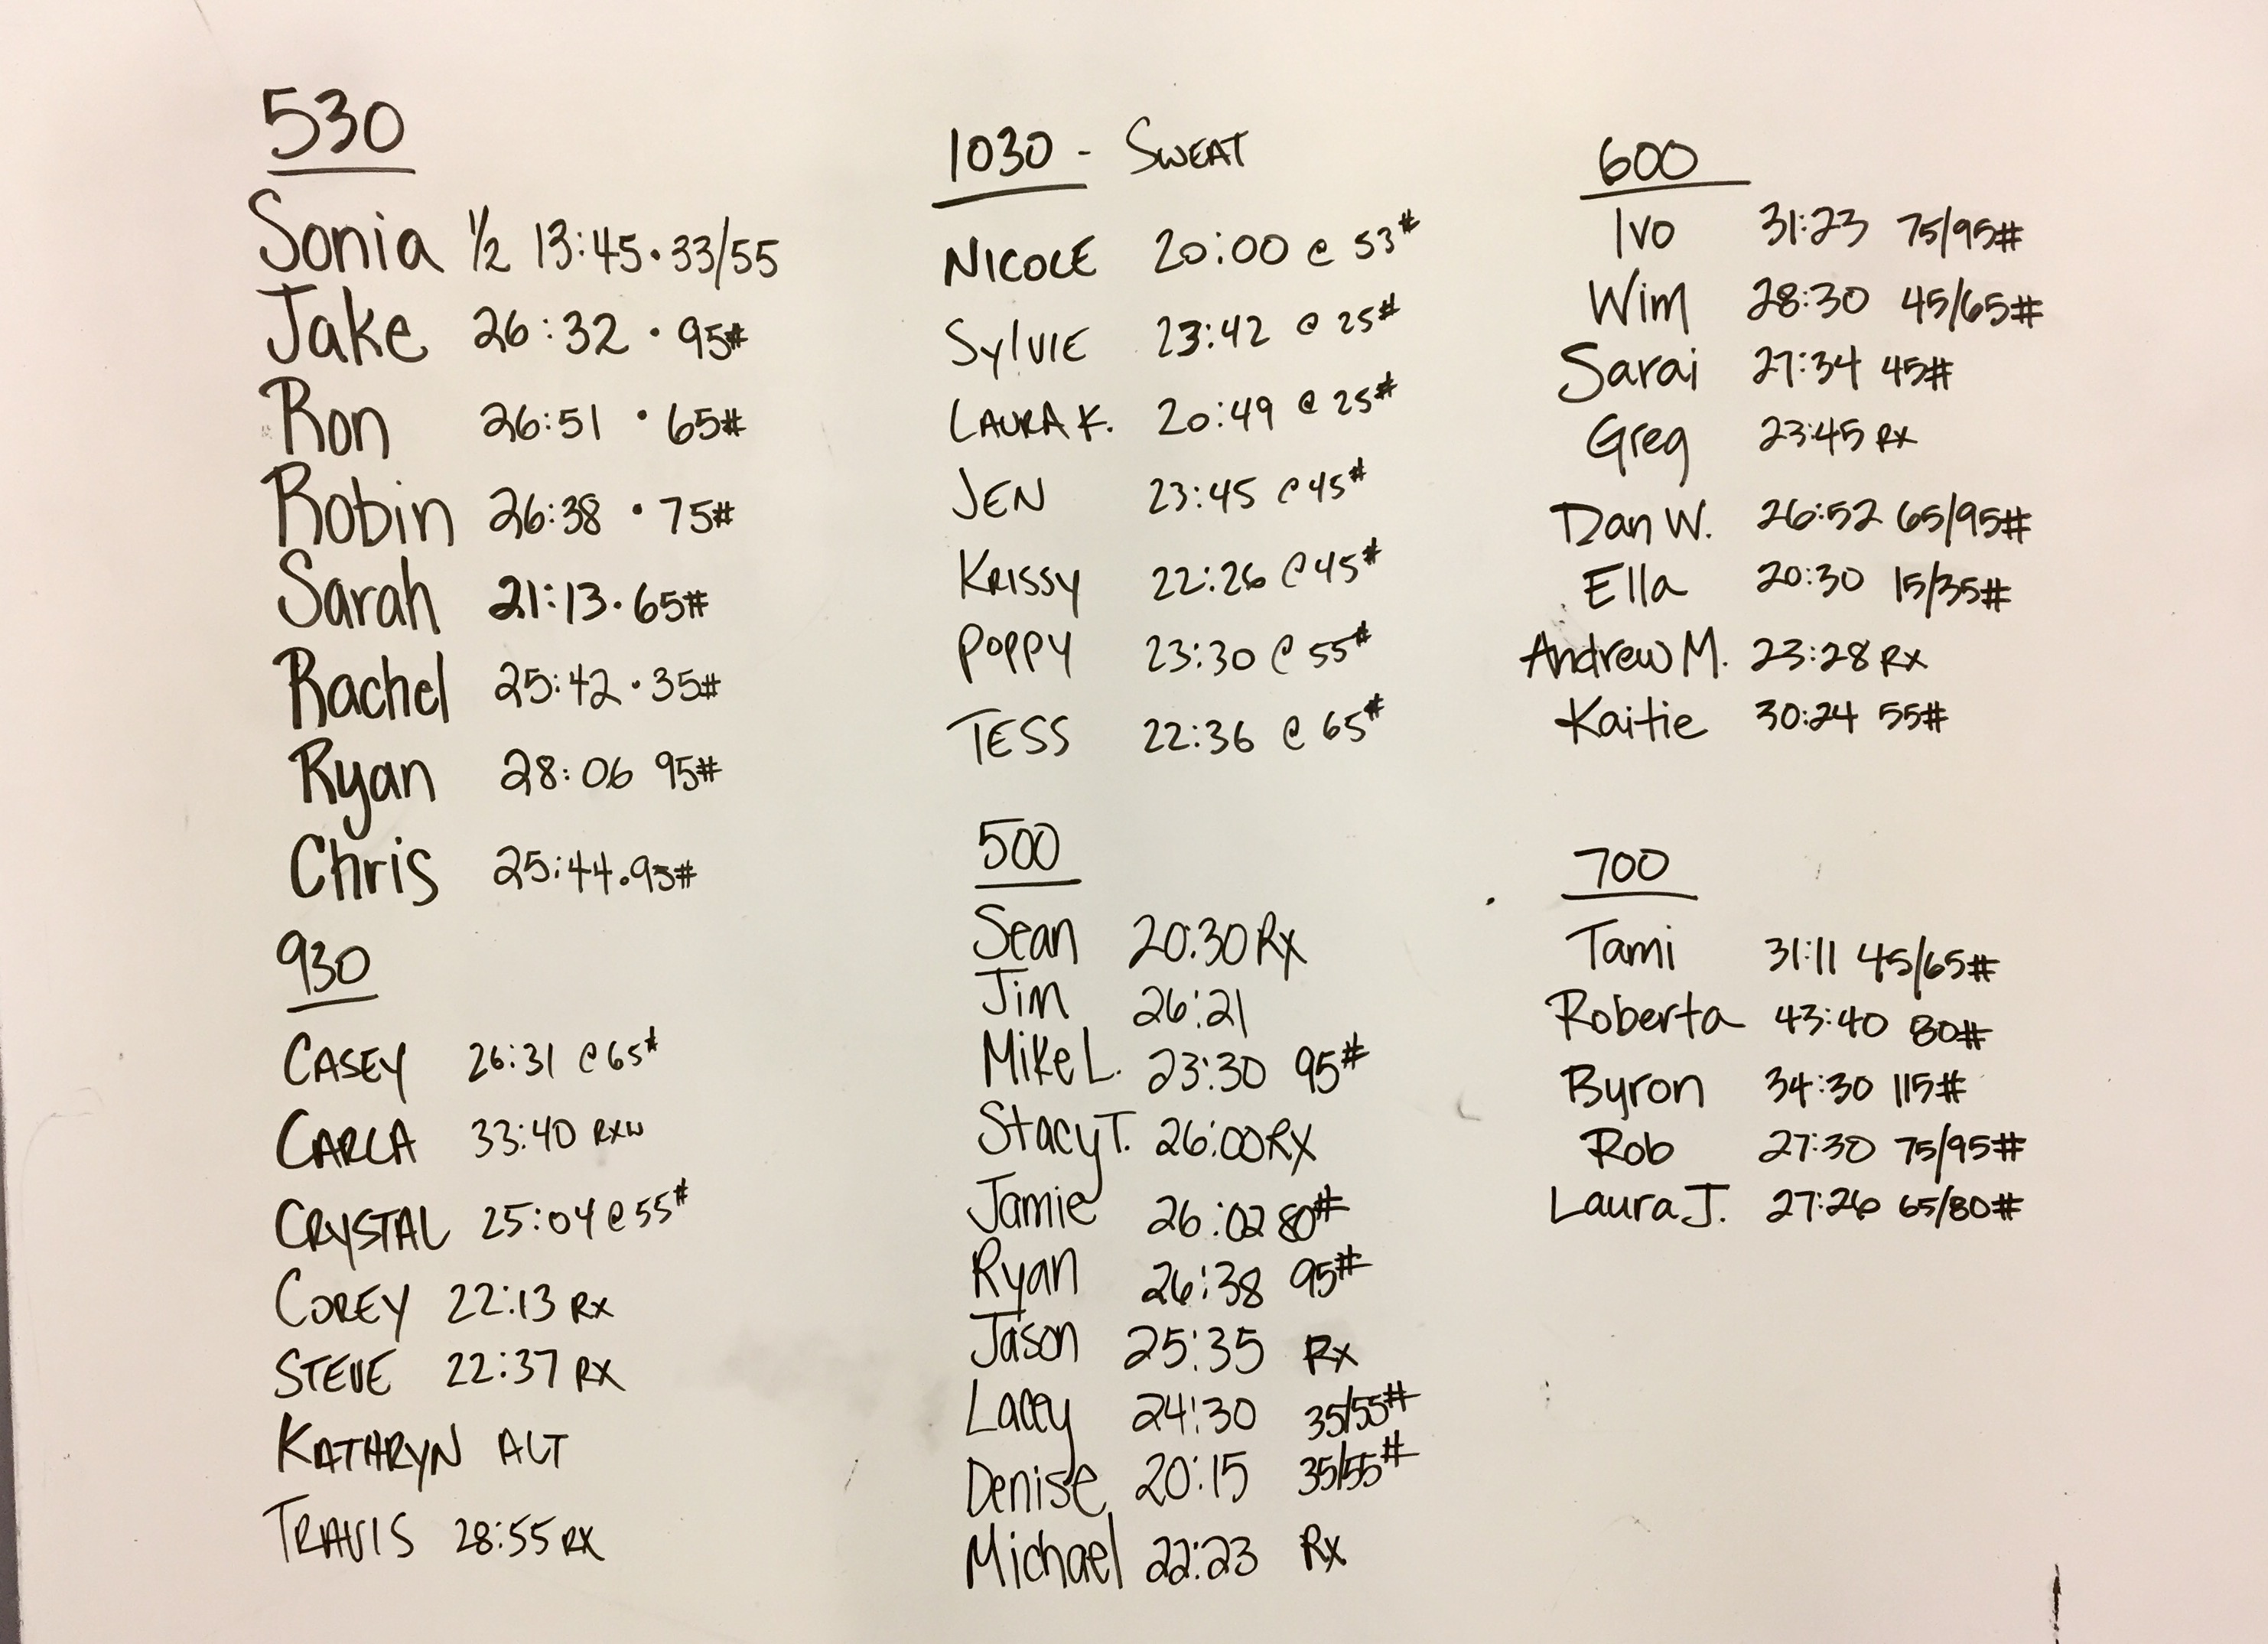 530
Sonia 1/2 13:45 · 33/55
Jake 26:32 · 95#
Ron 26:51 · 65#
Robin 26:38 · 75#
Sarah 21:13 · 65#
Rachel 25:42 · 35#
Ryan 28:06 95#
Chris 25:44 · 95#
930
CASEY 26:31 @ 65#
CARLA 33:40 RXW
CRYSTAL 25:04 @ 55#
COREY 22:13 RX
STEVE 22:37 RX
KATHRYN ALT
TRAVIS 28:55 RX
1030 - SWEAT
NICOLE 20:00 @ 53#
SylVIE 23:42 @ 25#
LAURA K. 20:49 @ 25#
JEN 23:45 @ 45#
KRISSY 22:26 @ 45#
POPPY 23:30 @ 55#
TESS 22:36 @ 65#
500
Sean 20:30 Rx
Jim 26:21
Mike L. 23:30 95#
Stacy T. 26:00 RX
Jamie 26:02 80#
Ryan 26:38 95#
Jason 25:35 Rx
Lacey 24:30 35/55#
Denise 20:15 35/55#
Michael 22:23 Rx
600
Ivo 31:23 75/95#
Wim 28:30 45/65#
Sarai 27:34 45#
Greg 23:45 RX
Dan W. 26:52 65/95#
Ella 20:30 15/35#
Andrew M. 23:28 RX
Kaitie 30:24 55#
700
Tami 31:11 45/65#
Roberta 43:40 80#
Byron 34:30 115#
Rob 27:30 75/95#
Laura J. 27:26 65/80#